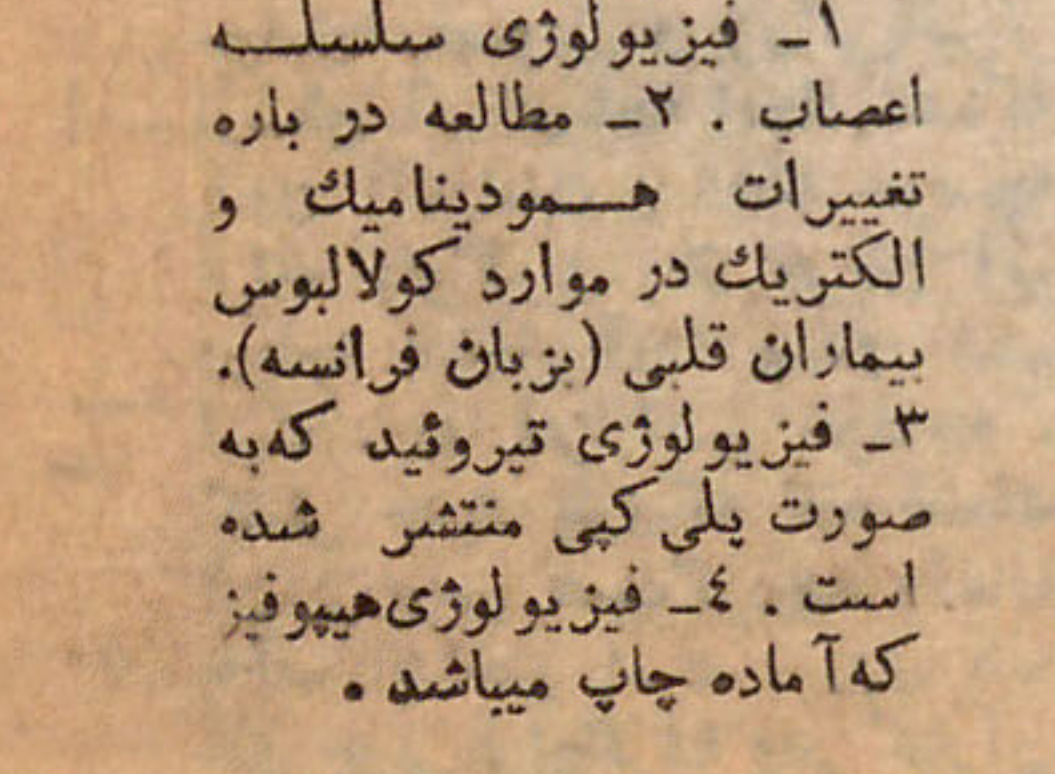 ۱ـ فیزیولوژی سلسلـه
اعصاب . ۲ـ مطالعه در باره
تغییرات همودینامیك و
الکتریك در موارد کولالبوس
بیماران قلبی (بزبان فرانسه).
۳ـ فیزیولوژی تیروئید که‌به
صورت پلی‌کپی منتشر شده
است . ٤ـ فیزیولوژی‌هیپوفیز
که‌آماده چاپ میباشد .